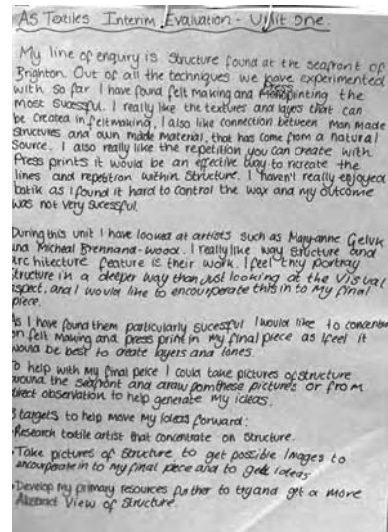 AS Textiles Interim Evaluation - Unit One.
My line of enquiry is Structure found at the seafront of
Brighton. Out of all the techniques we have experimented
with so far I have found felt making and Press printing the
most Sucessful. I really like the textures and layers that can
be created in feltmaking, I also like connection between man made
structures and own made material, that has come from a natural
source. I also really like the repetition you can create with
Press prints it would be an effective way to ricreate the
lines and repetition within Structure. I haven't really enjoyed
batik as I found it hard to control the wax and my outcome
was not very sucessful.
During this unit I have looked at artists such as Mary-anne Geluk
and Micheal Brennand-Wood. I really like way structure and
architecture feature is their work. I feel they portray
structure in a deeper way than just looking at the Visual
aspect, and I would like to encourporate this in to My final
piece.
As I have found them particularly sucessful I would like to concentrate
on felt making and press print in my final piece as I feel it
would be best to create layers and tones.
To help with my final peice I could take pictures of structure
around the seafront and draw from these pictures or from
direct observation to help generate My ideas.
3 targets to help move My Ideas forward:
Research textile artist that concentrate on Structure.
Take pictures of Structure to get possible Images to
encorporate in to my final piece and to get ideas
Develop my primary resources further to try and get a more
Abstract View of Structure